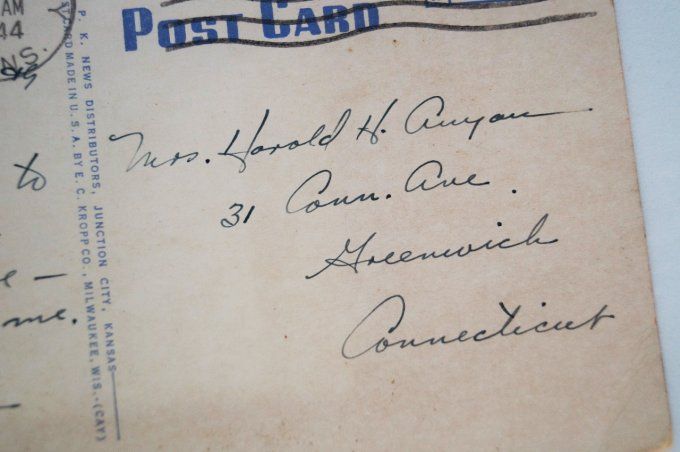 AM
44
NS.
POST CARD
P. K. NEWS DISTRIBUTORS, JUNCTION CITY, KANSAS
MADE IN U. S. A. BY E. C. KROPP CO., MILWAUKEE, WIS.-(CAY)
to
me.
Mrs. Harold H. Anyan
31 Conn. Ave.
Greenwich
Connecticut